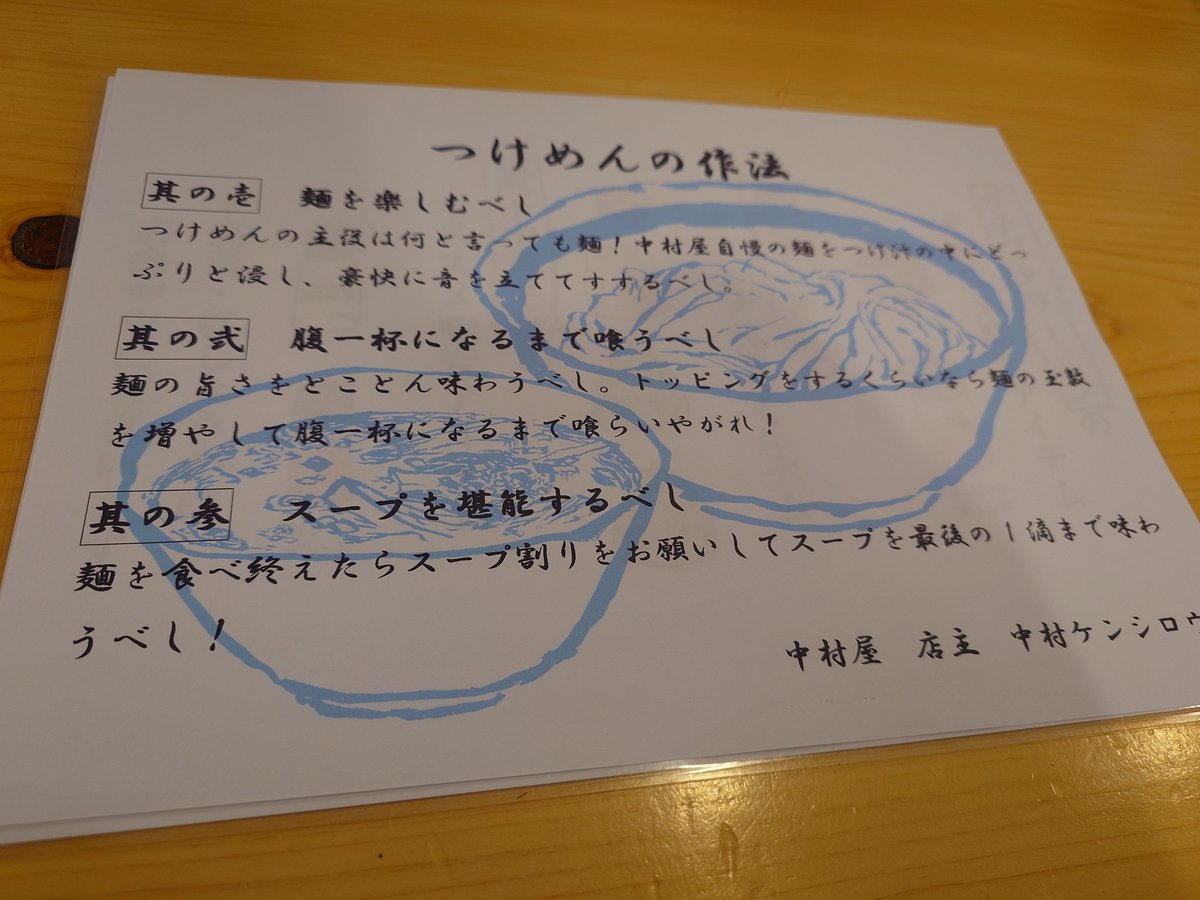 つけめんの作法
其の壱 麺を楽しむべし
つけめんの主役は何と言っても麺！中村屋自慢の麺をつけ汁の中にどっ
ぷりと浸し、豪快に音を立ててすするべし。
其の弐 腹一杯になるまで喰うべし
麺の旨さをとことん味わうべし。トッピングをするくらいなら麺の玉数
を増やして腹一杯になるまで喰らいやがれ！
其の参 スープを堪能するべし
麺を食べ終えたらスープ割りをお願いしてスープを最後の1滴まで味わ
うべし！
中村屋 店主 中村ケンシロウ